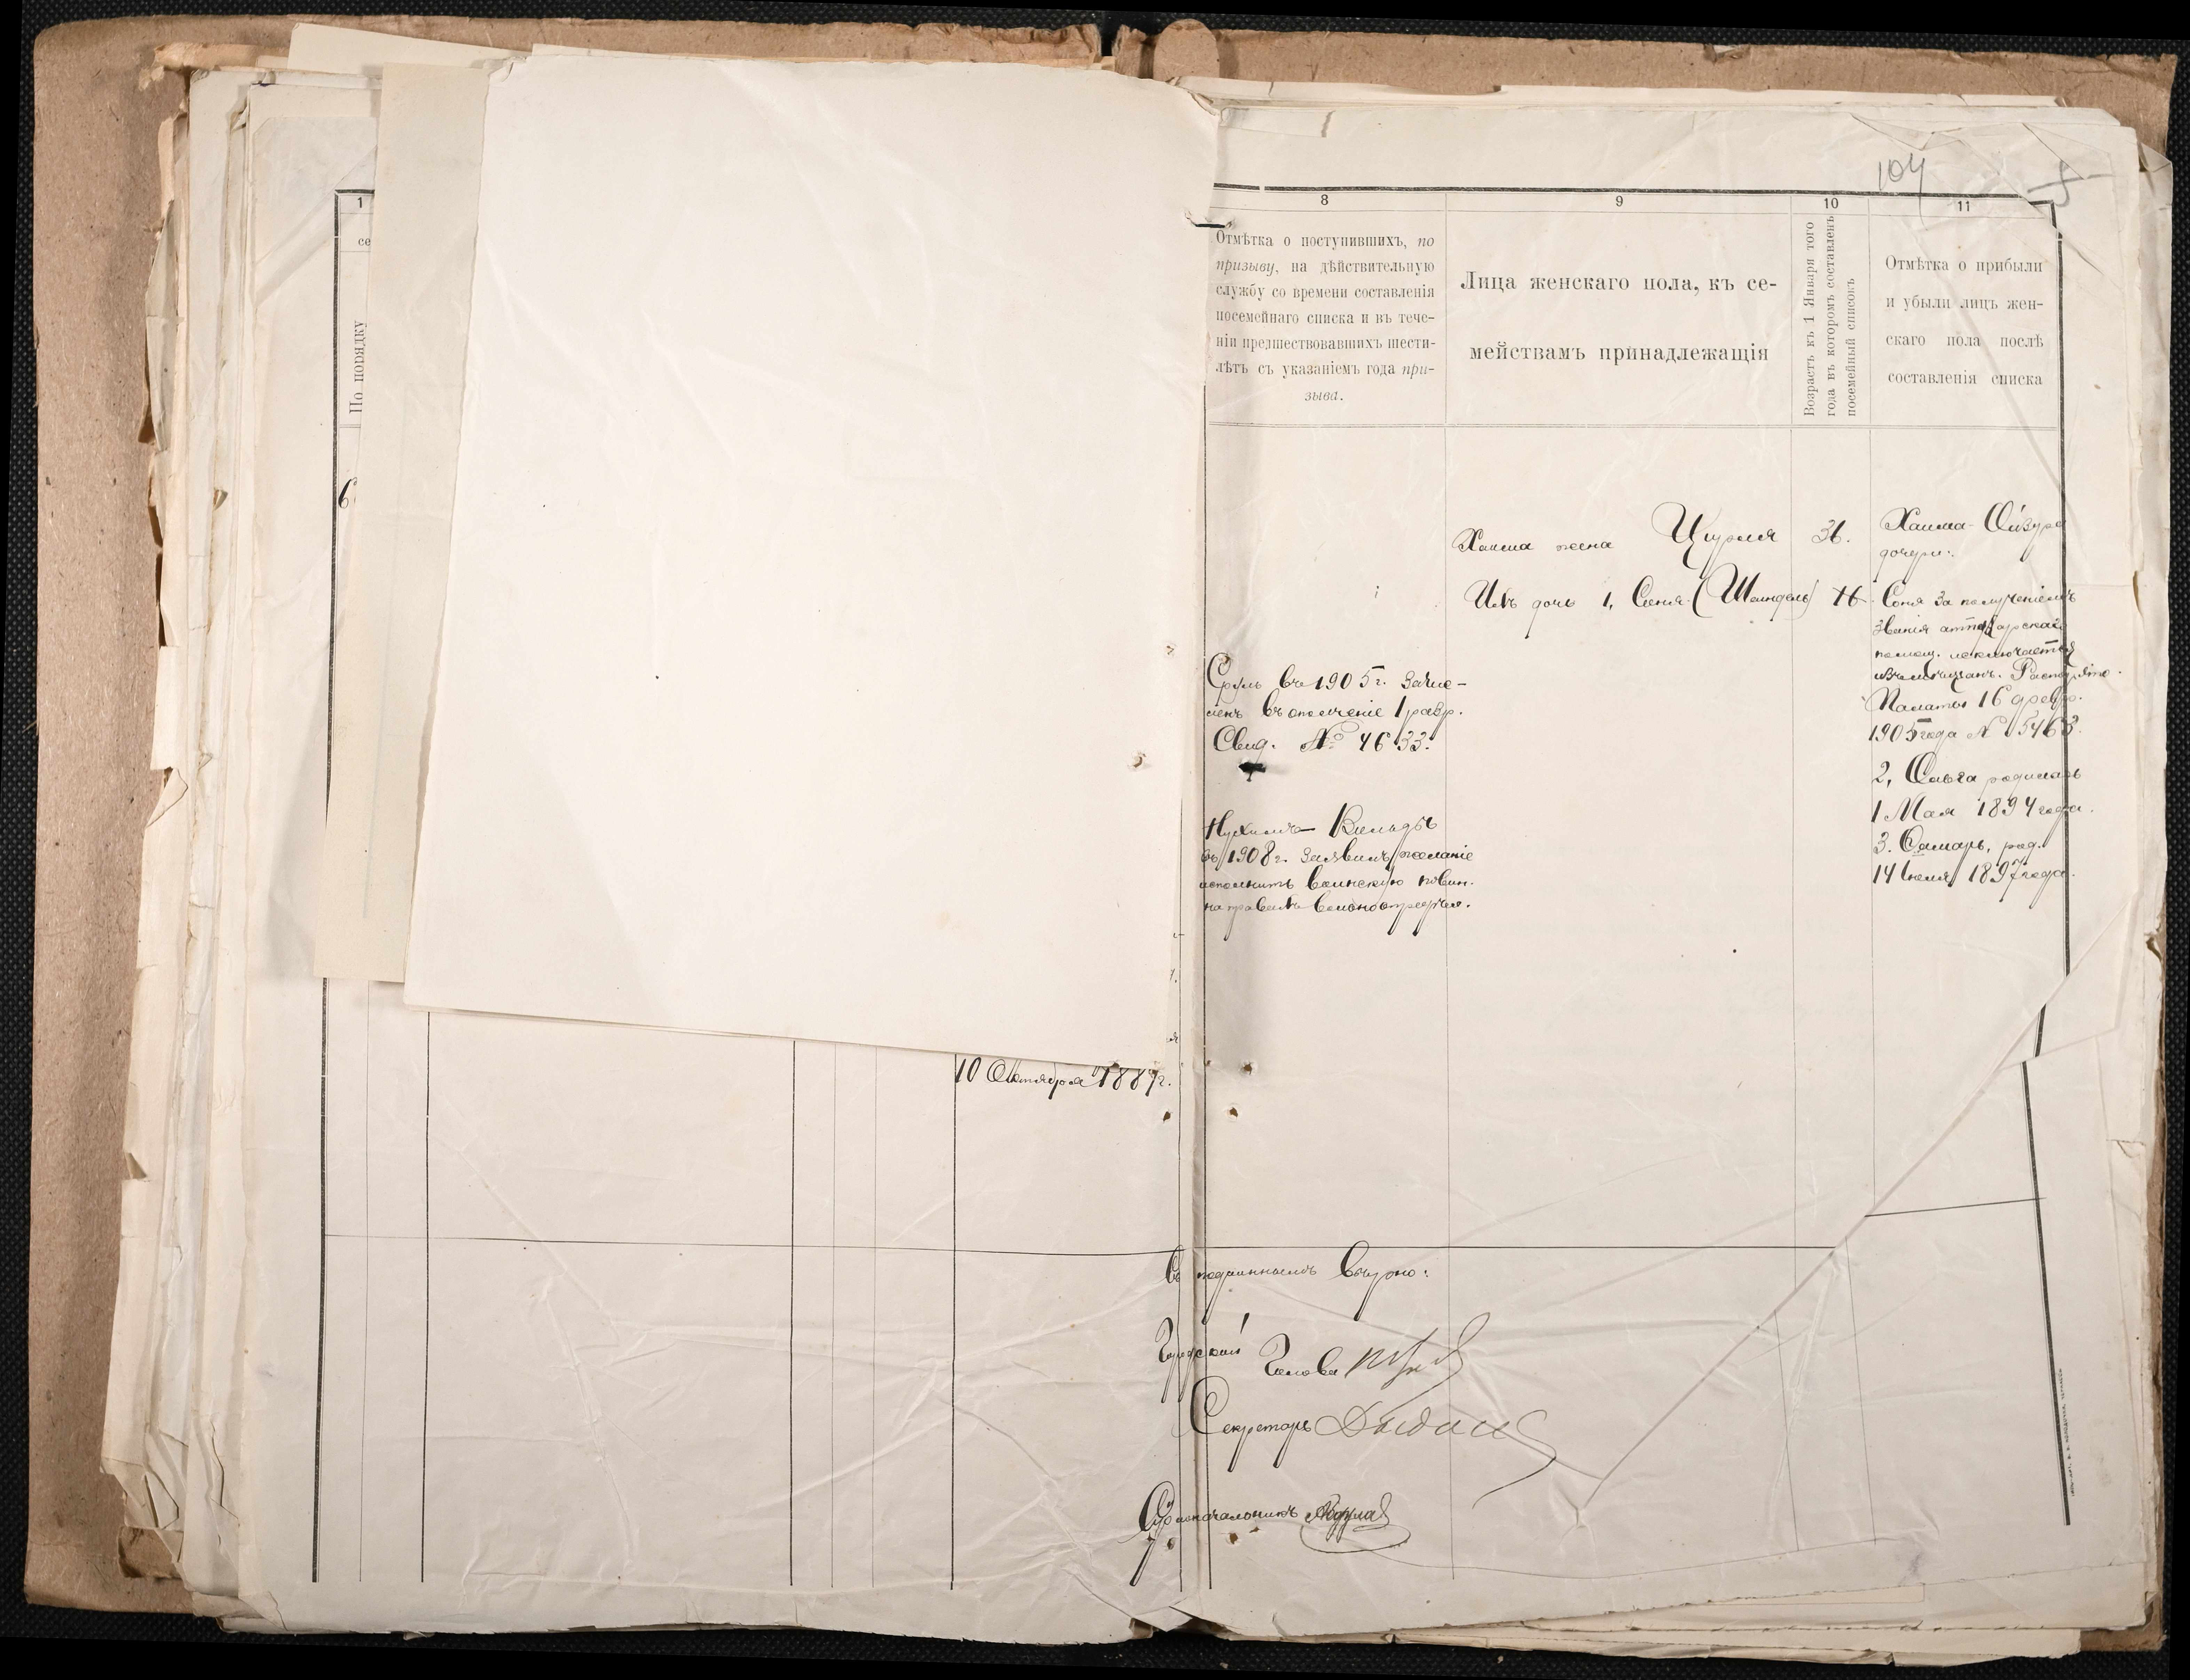 104
1
се
По порядку
6
10 Октября 1887 г.
8
Отмѣтка о поступившихъ, по
призыву, на дѣйствительную
службу со времени составленія
посемейнаго списка и въ тече-
ніи предшествовавшихъ шести-
лѣтъ съ указаніемъ года при-
зыва.
Сруль въ 1905 г. зачис-
ленъ въ ополченіе 1 разр.
Свид. № 4633.
въ 1908 г. заявилъ желаніе
исполнить воинскую повин.
на правахъ вольноопредѣл.
9
Лица женскаго пола, къ се-
мействамъ принадлежащія
Хаима жена Цирля
Ихъ дочь 1, Сеня (Шейндель)
10
Возрастъ къ 1 Января того
года въ которомъ составленъ
посемейный списокъ
36.
16
11
Отмѣтка о прибыли
и убыли лицъ жен-
скаго пола послѣ
составленія списка
Хаима-
дочери:
Соня за полученіемъ
званія аптекарскаго
помощ. исключается
изъ мѣщанъ.
Палаты 16 февр.
1905 года № 5463.
2, Ольга родилась
1 Мая 1894 года.
3. Тамарь, род.
14 Іюля 1897 года.
Съ подлиннымъ вѣрно:
Городской Голова
Секретарь
Столоначальникъ